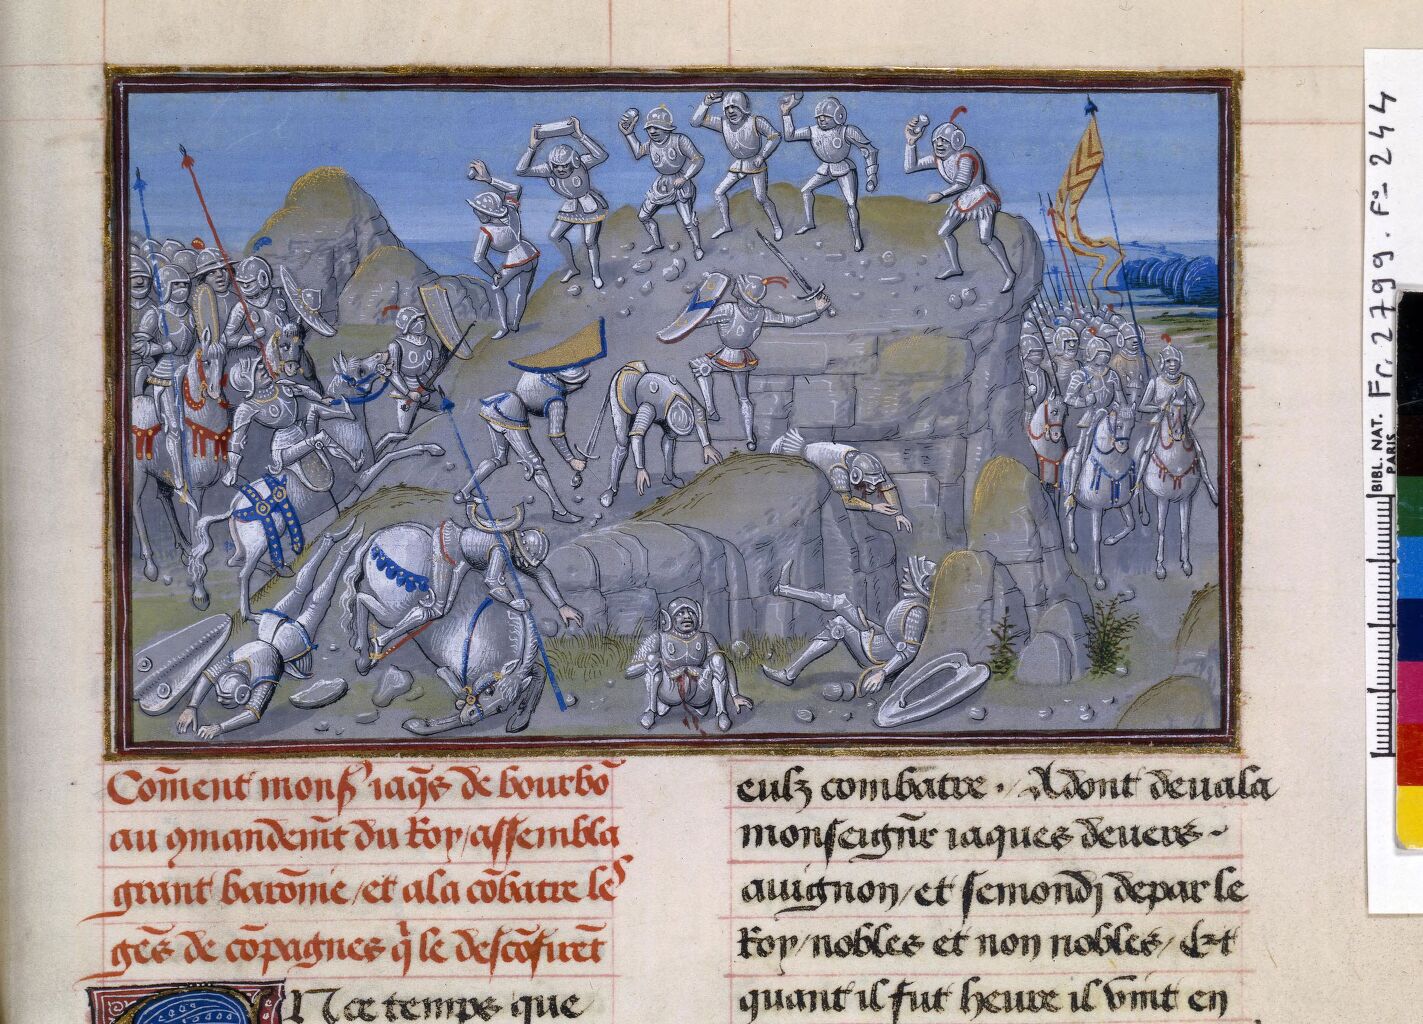 Com̄ent monſr̄ iaq̄s de bourbō
au ꝯmandem̄t du Roy / aſſembla
grant barōnie / et ala cōbatre leˢ
gēs de cōpagnes q̄ le deſcōfirēt
En ce temps que
eulz combatre · / Adont deuala
monſeign̄r iaques deuers ~
auignon / et ſemondj depar le
Roy / nobles et non nobles / Et
quant il fut heure il vint en
BIBL. NAT.
PARIS
Fr. 2799 . Fº 244